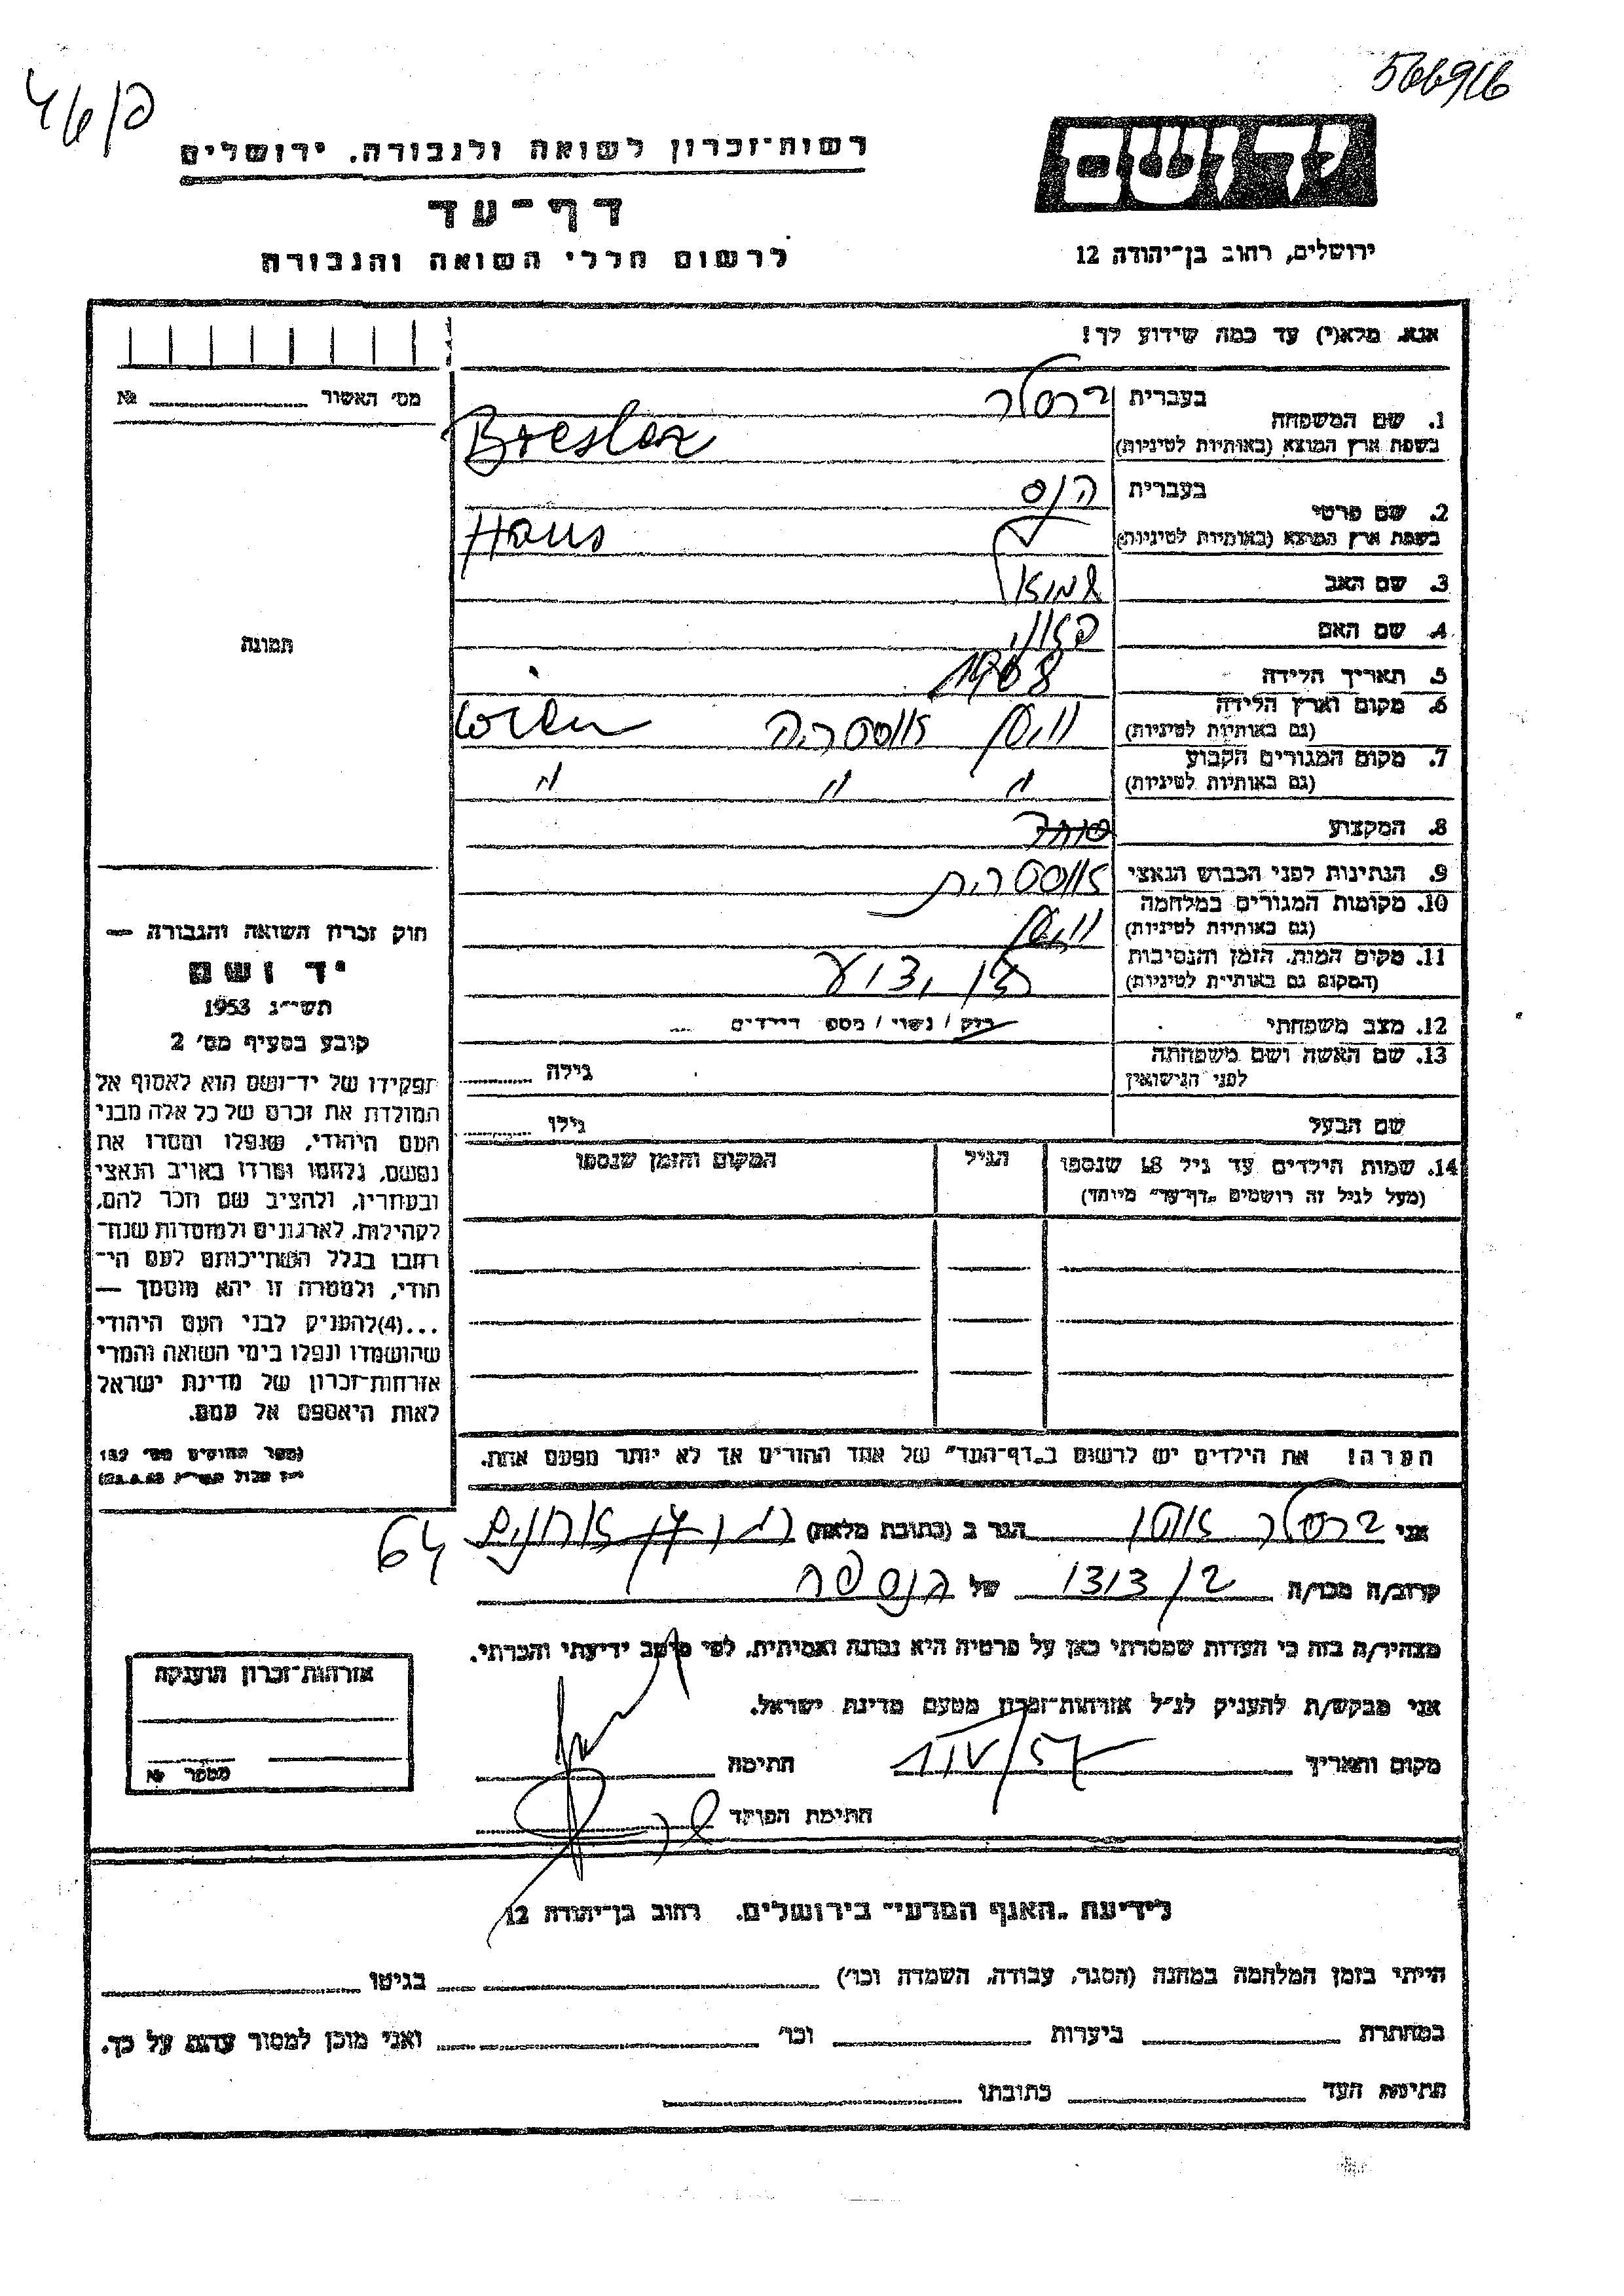 566916
46/פ
יד ושם
ירושלים, רחוב בן־יהודה 12
רשות־זכרון לשואה ולגבורה, ירושלים
דף־עד
לרשום חללי השואה והגבורה
אנא, מלא(י) עד כמה שידוע לך!
מס׳ האשור № 
1. שם המשפחה
בעברית ברסלר
בשפת ארץ המוצא (באותיות לטיניות) Bresler
2. שם פרטי
בעברית הנס
בשפת ארץ המוצא (באותיות לטיניות) Hans
3. שם האב
4. שם האם
5. תאריך הלידה 1908
6. מקום וארץ הלידה
(גם באותיות לטיניות) וינה אוסטריה Wien
7. מקום המגורים הקבוע
(גם באותיות לטיניות) " " "
8. המקצוע סוחר
9. הנתינות לפני הכבוש הנאצי אוסטרית
10. מקומות המגורים במלחמה
(גם באותיות לטיניות) וינה
11. מקום המות, הזמן והנסיבות
(המקום גם באותיות לטיניות) לא ידוע
12. מצב משפחתי רווק / נשוי / מספר הילדים
13. שם האשה ושם משפחתה
לפני הנישואין גילה
שם הבעל גילו
14. שמות הילדים עד גיל 18 שנספו
(מעל לגיל זה רושמים „דף־עד״ מיוחד)
הגיל
המקום והזמן שנספו
הערה! את הילדים יש לרשום ב„דף־העד״ של אחד ההורים אך לא יותר מפעם אחת.
תמונה
חוק זכרון השואה והגבורה —
יד ושם
תשי״ג 1953
קובע בסעיף מס׳ 2
תפקידו של יד־ושם הוא לאסוף אל
המולדת את זכרם של כל אלה מבני
העם היהודי, שנפלו ומסרו את
נפשם, נלחמו ומרדו באויב הנאצי
ובעוזריו, ולהציב שם וזכר להם,
לקהילות, לארגונים ולמוסדות שנח־
רבו בגלל השתייכותם לעם הי־
הודי, ולמטרה זו יהא מוסמך —
...(4)להעניק לבני העם היהודי
שהושמדו ונפלו בימי השואה והמרי
אזרחות־זכרון של מדינת ישראל
לאות היאספם אל עמם.
(ספר החוקים מס׳ 132
אני ברסלר הגר ב (כתובת מלאה) 64
קרוב/ה מכר/ה בן דוד של הנספה
מצהיר/ה בזה כי העדות שמסרתי כאן על פרטיה היא נכונה ואמיתית, לפי מיטב ידיעתי והכרתי.
אני מבקש/ת להעניק לנ״ל אזרחות־זכרון מטעם מדינת ישראל.
מקום ותאריך 1/IV/57 חתימה
חתימת הפוקד
אזרחות־זכרון הוענקה
מספר №
לידיעת „האגף המדעי״ בירושלים, רחוב בן־יהודה 12
הייתי בזמן המלחמה במחנה (הסגר, עבודה, השמדה וכו׳) בגיטו
במחתרת ביערות וכו׳ ואני מוכן למסור עדותי על כך.
חתימת העד כתובתו